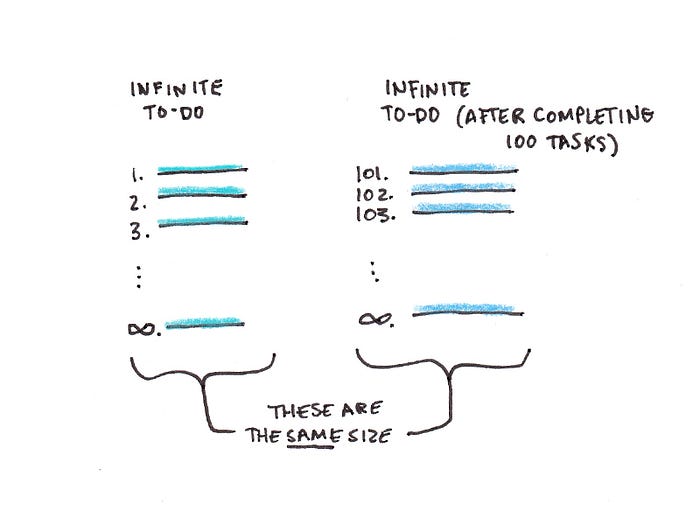 INFINITE
TO-DO
1.
2.
3.
∞.
INFINITE
TO-DO (AFTER COMPLETING
100 TASKS)
101.
102.
103.
∞.
THESE ARE
THE SAME SIZE